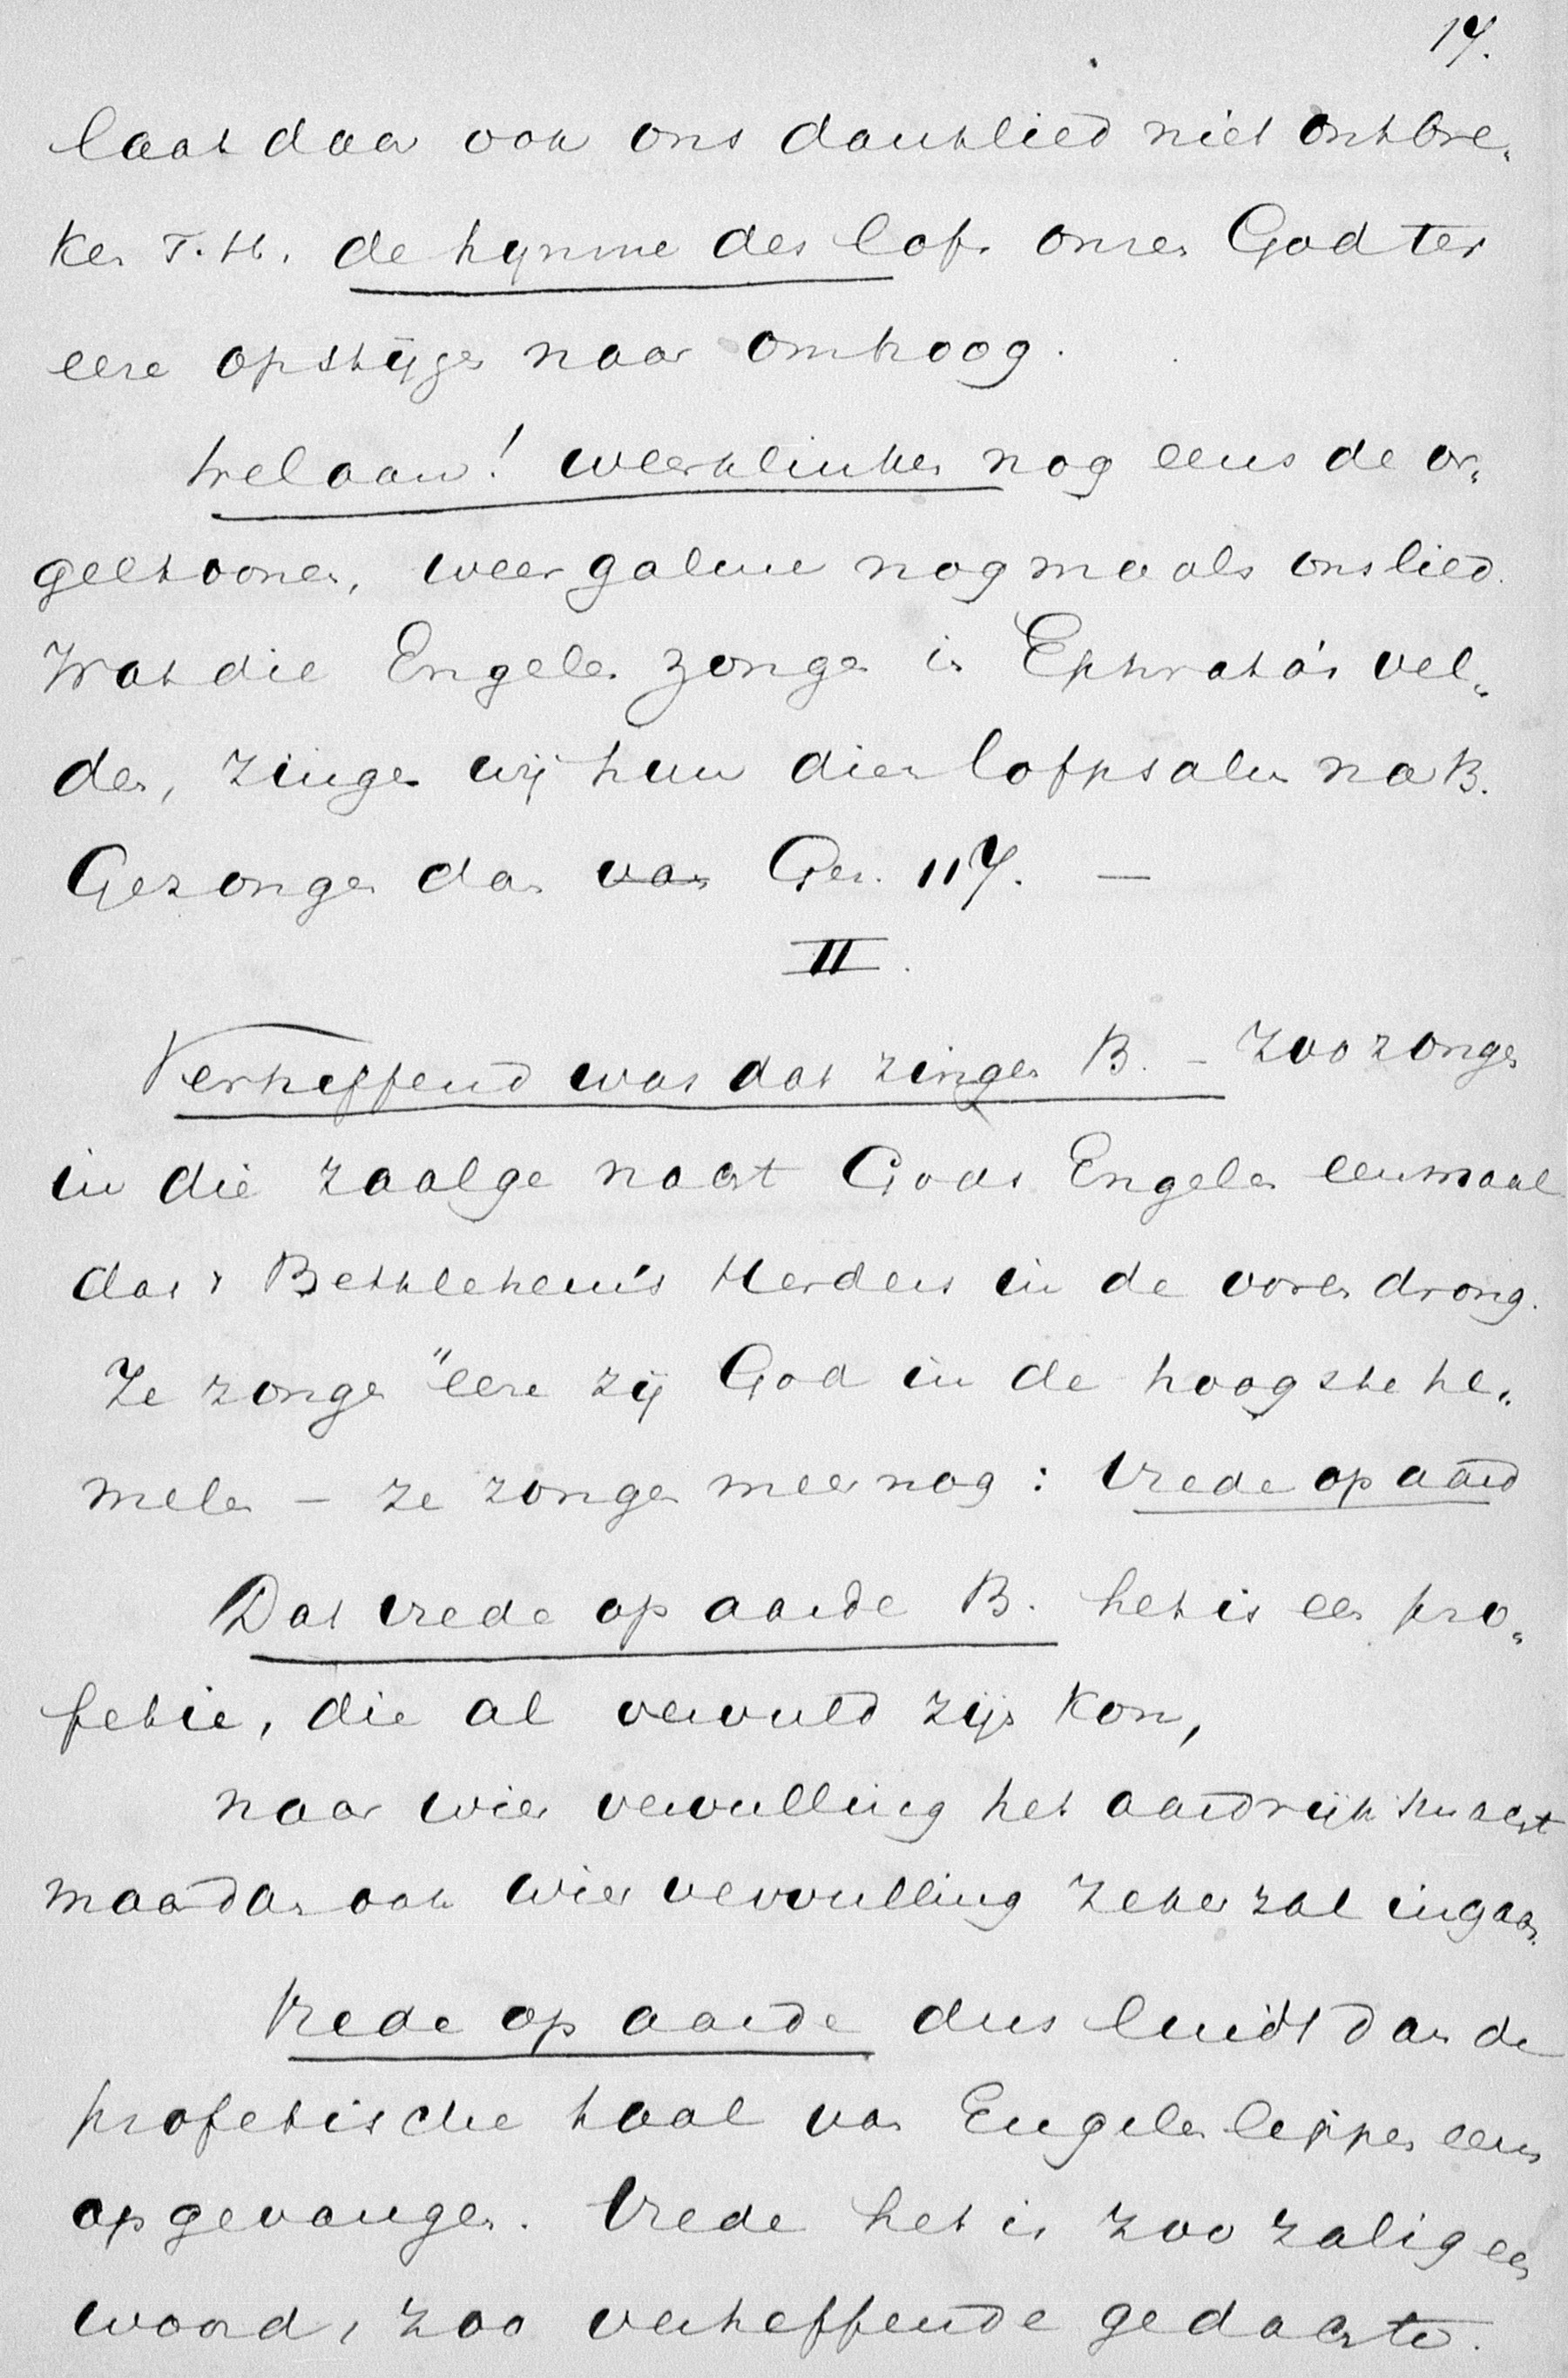 17.
laat daar ook ons danklied niet ontbre„
ken T. H. de hymne des lofs onzen God ter
eere opstijgen naar omhoog.
Welaan! weerklinken nog eens de or„
geltoonen, weergalme nogmaals ons lied.
Wat die Engelen zongen in Ephrata's vel„
den, zingen wij hun dien lofpsalm na B.
Gezongen dan van Gez. 117. —
II.
Verheffend was dat zingen B. – Zoo zongen
in die zaalge nacht Gods Engelen eenmaal
dat 't Bethlehem's Herders in de ooren drong.
Ze zongen "eere zij God in de hoogste he„
melen – ze zongen meer nog: Vrede op aard
Dat vrede op aarde B. het is een pro„
fetie, die al vervuld zijn kon,
naar wier vervulling het aardrijk smacht
maar dan ook wier vervulling zeker zal ingaan.
Vrede op aarde dus luidt dan de
profetische taal van Engelen lippen eens
opgevangen. Vrede het is zoo zalig een
woord, zoo verheffende gedachte.